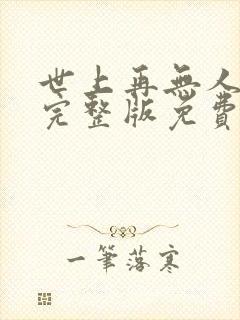 世上再無人
完整版免費
一筆落寒